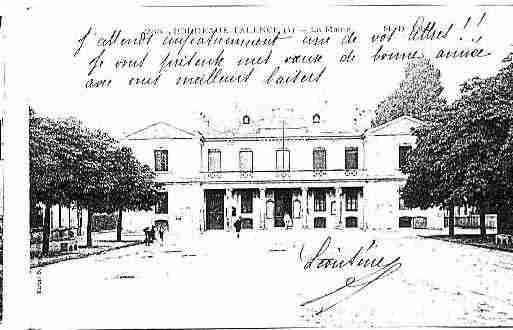 BORDEAUX-TALENCE — La Mairie
J'attends impatiemment une de vos lettres !!
Je vous présente mes vœux de bonne année
avec mes meilleurs baisers